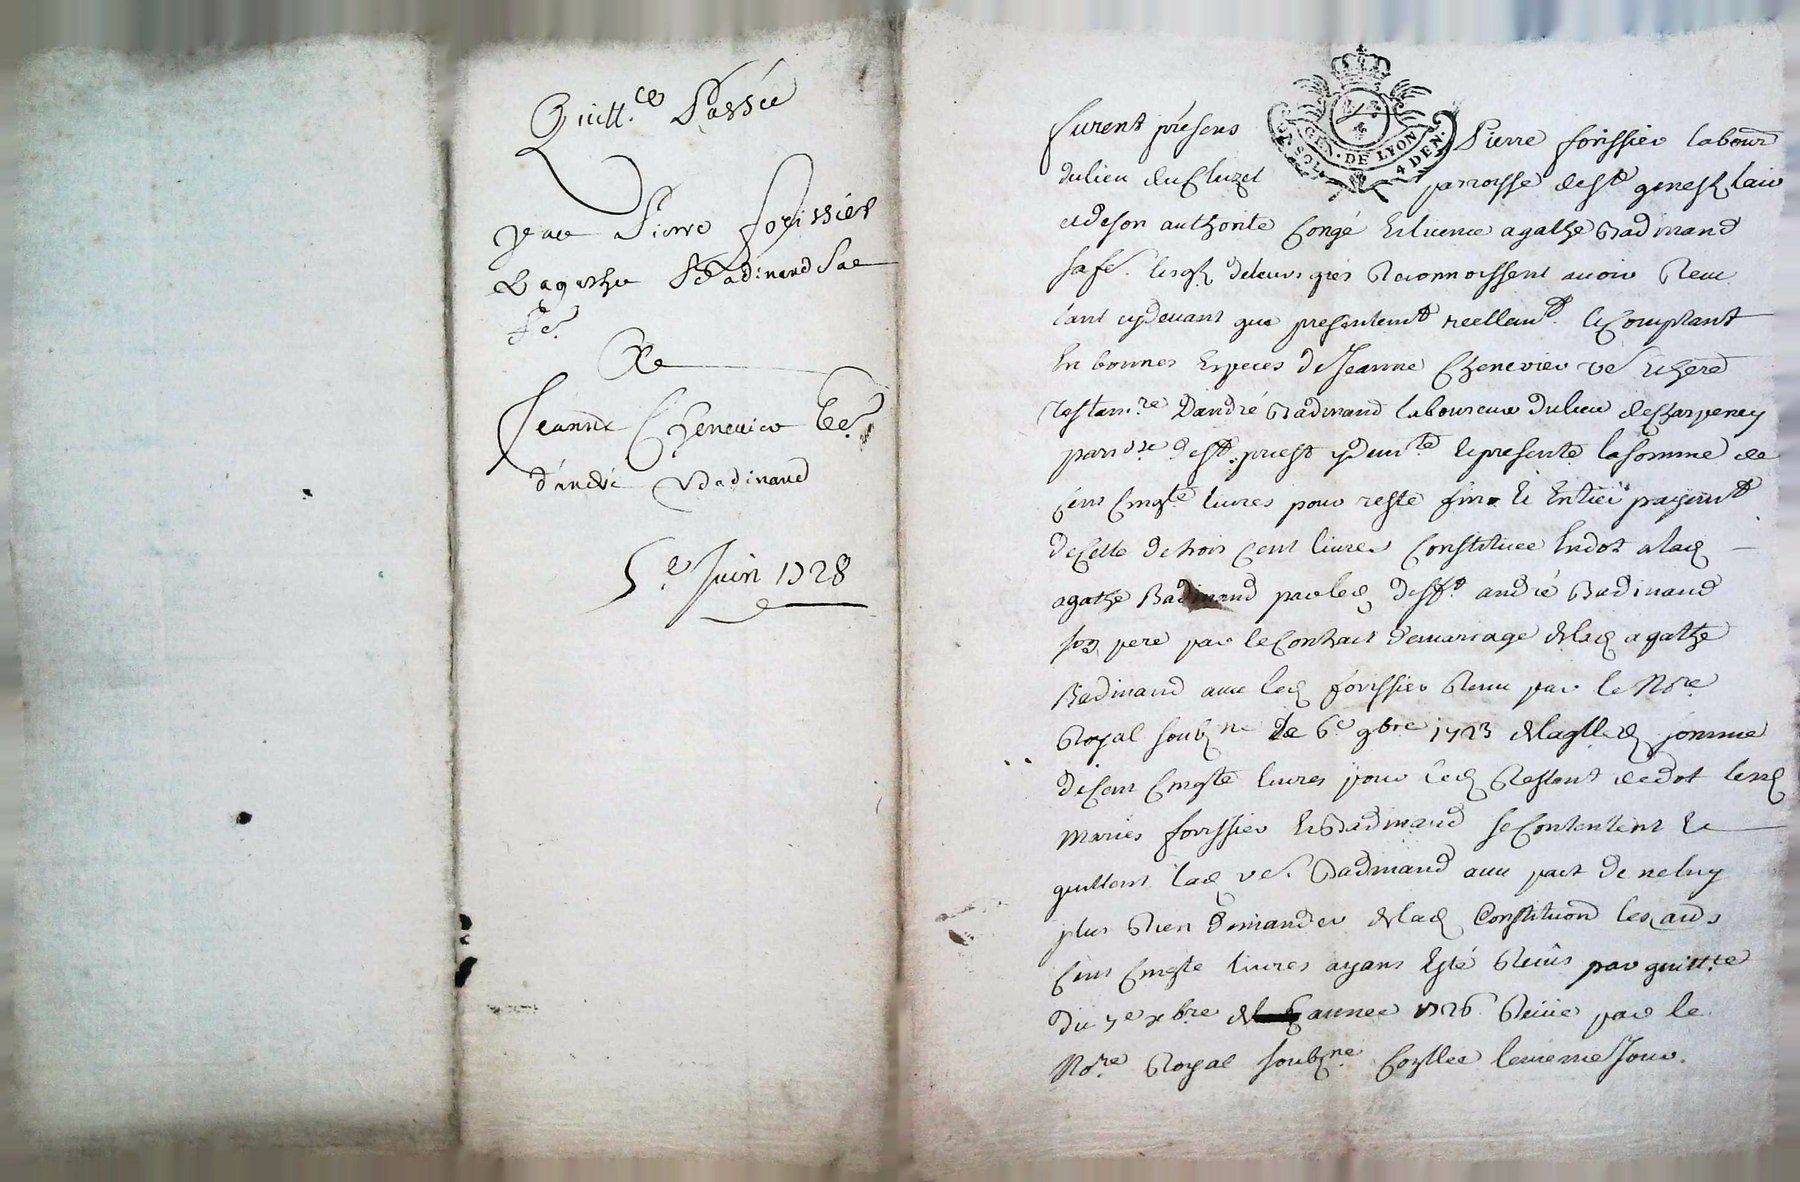 Quitt.ce Passée
Par Pierre forissier
& agathe Badinand Sa
fe.
A
Jeanne Chenevier ve.
d'andré Badinand
5.e Juin 1728
GEN. DE LYON
4 DEN.
furent présens Pierre forissier labour
du lieu du Cluzel parroisse de St genest lair
et de son authorité Congé & licence agathe Badinand
sa fe. lesq. de leurs grés Reconnoissent avoir Receu
tant cydevant que presentemt reellemt. & Comptant
En bonnes Especes de Jeanne Chenevier ve & here
testam.re D'andré Badinand laboureur du lieu de
parsse de St. priest presente la somme de
Cent Cinqte livres pour reste fin & Entier payemt
de Celle de trois Cent livres Constituee En dot a lad
agathe Badinand par led deff.t andré Badinand
son pere par le Contract de mariage de lad agathe
Badinand avec led forissier Receu par le No.re
Royal soubne Le 6e 9bre 1723 de laqlle somme
de Cent Cinqte livres pour led Restant de dot lesd
maries forissier & Badinand se Contentent &
quittent lad ve. Badinand avec pact de ne luy
plus Rien demander de lad Constitution les au.s
Cent Cinqte livres ayans Esté Receüs par quitt.ce
du 7e xbre année 1726 Receüe par le
No.re Royal soubne. Conllee le meme Jour.